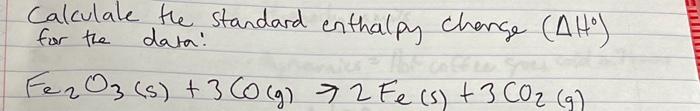 Calculate the standard enthalpy change (ΔH°)
for the data:
Fe₂O₃(s) + 3CO(g) → 2Fe(s) + 3CO₂(g)